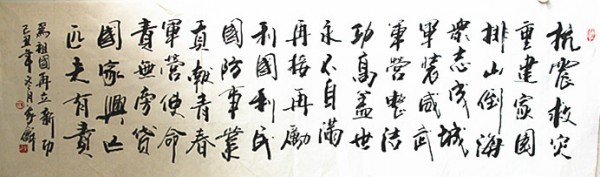 抗震救灾
重建家園
排山倒海
衆志成城
軍裝威武
軍營整洁
功高蓋世
永不自滿
再接再勵
利國利民
國防事業
貢献青春
軍營使命
責無旁貸
國家興亡
匹夫有責
爲祖國再立新功
己丑年冬月